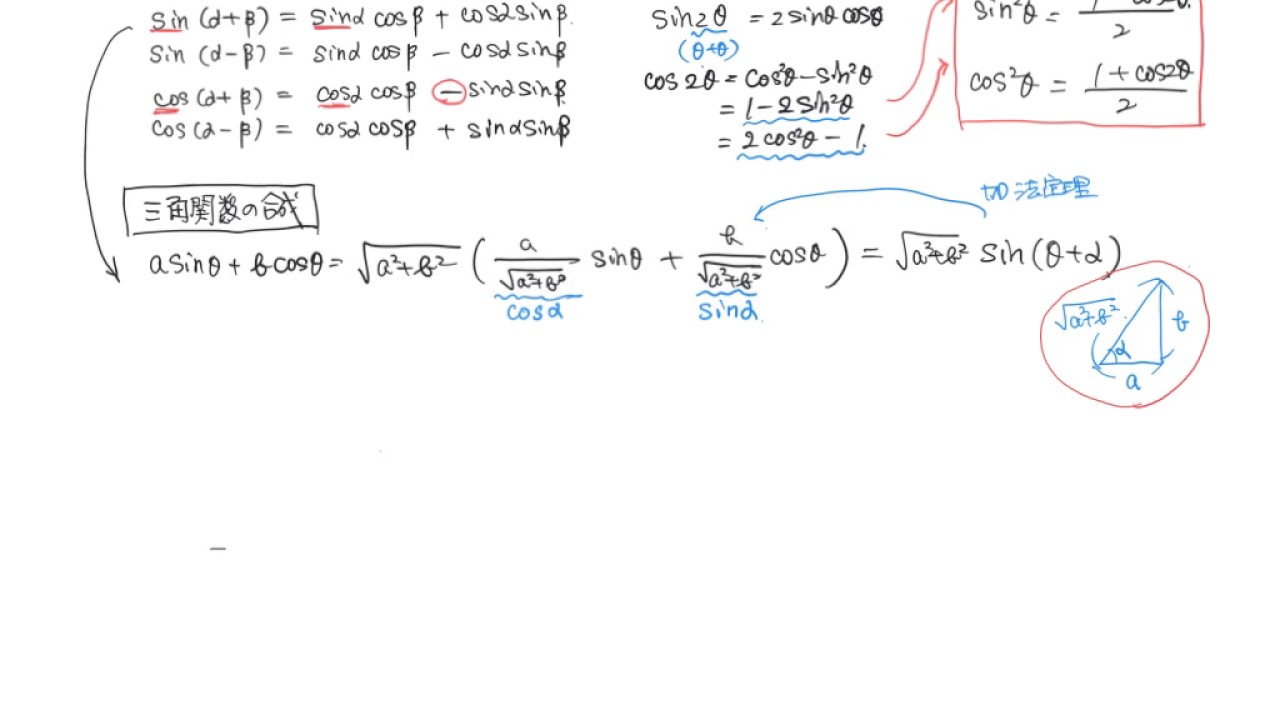 sin (α+β) = sinα cosβ + cosα sinβ.
sin (α-β) = sinα cosβ - cosα sinβ
cos (α+β) = cosα cosβ - sinα sinβ.
cos (α-β) = cosα cosβ + sinα sinβ
sin2θ = 2 sinθ cosθ
(θ+θ)
cos 2θ = cos²θ - sin²θ
= 1 - 2 sin²θ
= 2 cos²θ - 1.
sin²θ = /2
cos²θ = (1 + cos2θ)/2
三角関数の合成
加法定理
a sinθ + b cosθ = √(a²+b²) ( a/√(a²+b²) sinθ + b/√(a²+b²) cosθ ) = √(a²+b²) sin (θ+α)
cosα
sinα.
√(a²+b²)
b
α
a